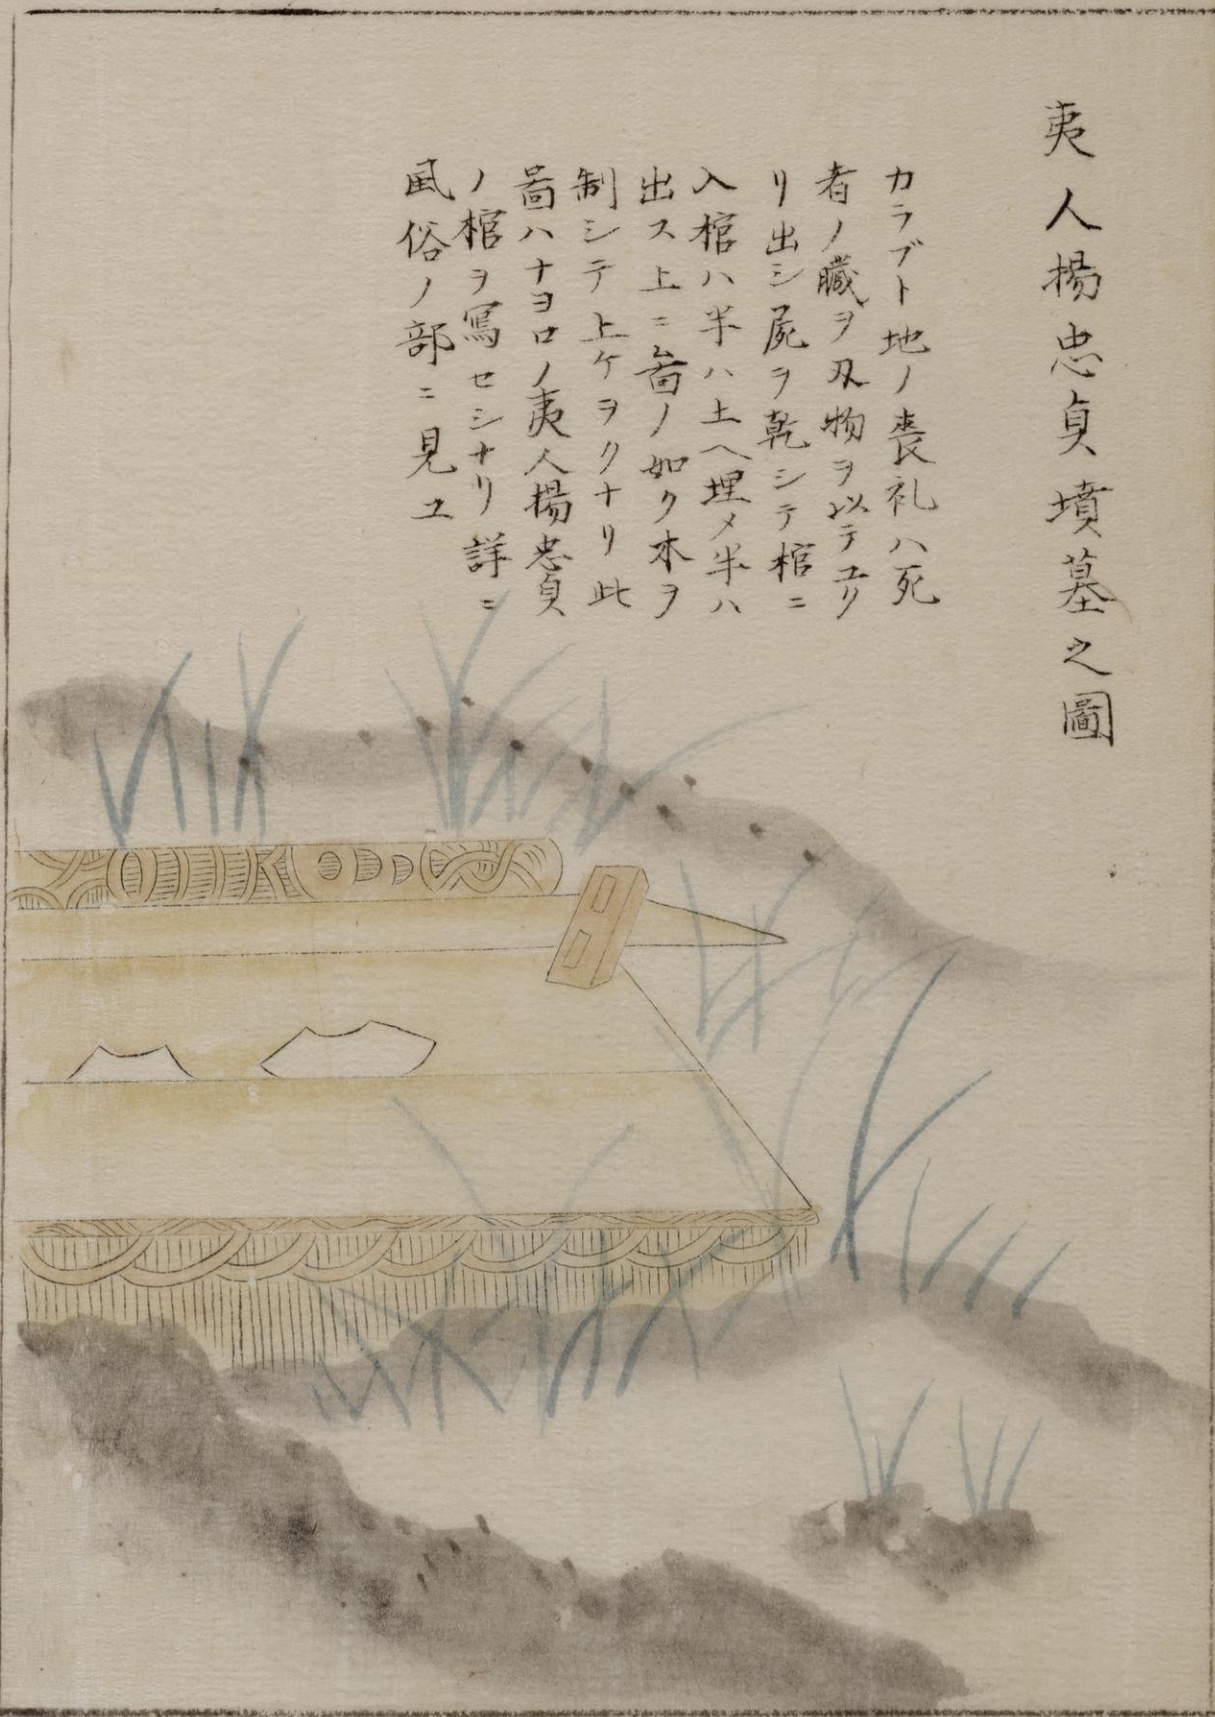 夷人揚忠貞墳墓之圖
カラブト地ノ喪礼ハ死
者ノ臓ヲ刄物ヲ以テユリ
リ出シ屍ヲ乾シテ棺ニ
入棺ハ半ハ土ヘ埋メ半ハ
出ス上ニ啚ノ如ク木ヲ
制シテ上ケヲクナリ此
啚ハナヨロノ夷人揚忠貞
ノ棺ヲ寫セシナリ詳ニ
風俗ノ部ニ見ユ